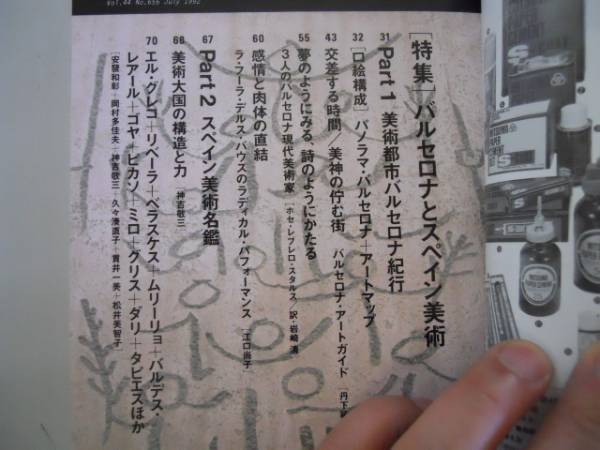 Vol.44 No.656 July 1992
[特集]バルセロナとスペイン美術
31 Part 1 美術都市バルセロナ紀行
32 [口絵構成]パノラマ・バルセロナ+アートマップ
43 交差する時間 美神の佇む街 バルセロナ・アートガイド [丹下
55 夢のようにみる、詩のようにかたる
3人のバルセロナ現代美術家 [ホセ・レブレロ・スタルス/訳・岩崎清]
60 感情と肉体の直結
ラ・フーラ・デルス・バウスのラディカル・パフォーマンス [江口尚子]
67 Part 2 スペイン美術名鑑
68 美術大国の構造と力 [神吉敬三]
70 エル・グレコ+リベーラ+ベラスケス+ムリーリョ+バルデス・
レアール+ゴヤ+ピカソ+ミロ+グリス+ダリ+タピエスほか
[安發和彰+岡村多佳夫+神吉敬三+久々湊直子+貫井一美+松井美智子]